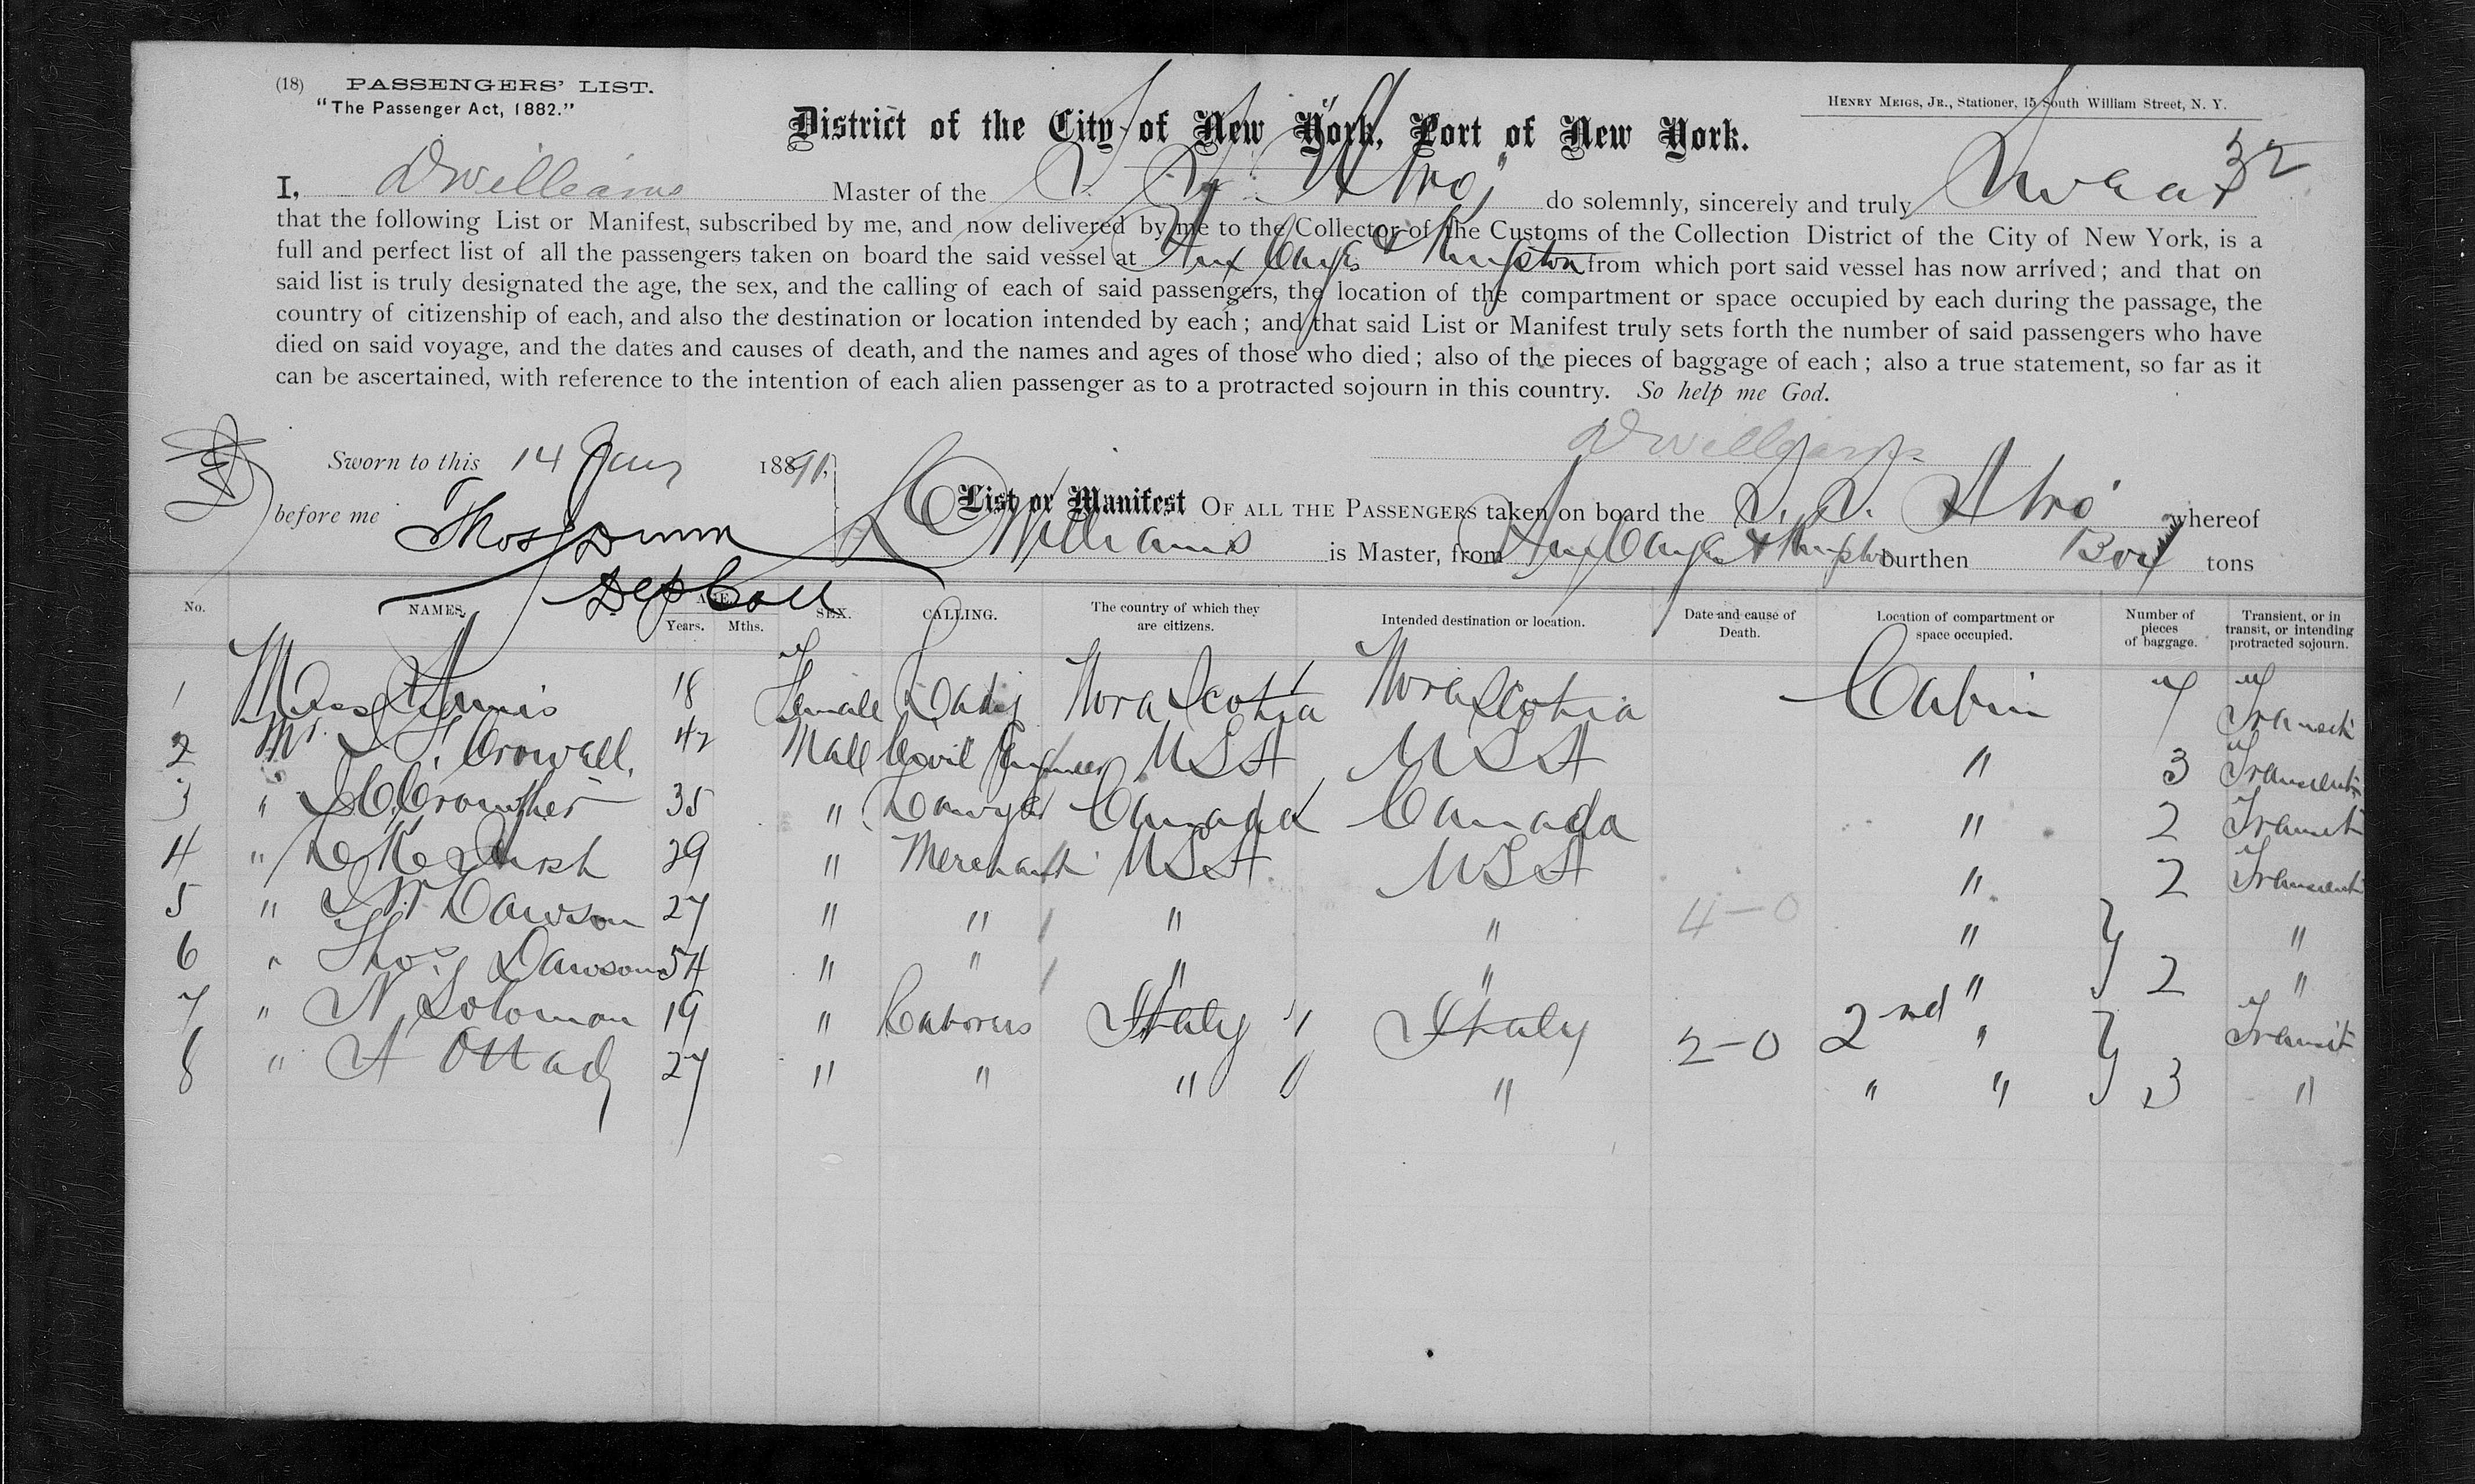 (18) PASSENGERS' LIST.
"The Passenger Act, 1882."
HENRY MEIGS, JR., Stationer, 15 South William Street, N. Y.
District of the City of New York, Port of New York.
32
I, D Williams Master of the S. S. Athos do solemnly, sincerely and truly Swear
that the following List or Manifest, subscribed by me, and now delivered by me to the Collector of the Customs of the Collection District of the City of New York, is a
full and perfect list of all the passengers taken on board the said vessel at Aux Cayes & Kingston from which port said vessel has now arrived; and that on
said list is truly designated the age, the sex, and the calling of each of said passengers, the location of the compartment or space occupied by each during the passage, the
country of citizenship of each, and also the destination or location intended by each; and that said List or Manifest truly sets forth the number of said passengers who have
died on said voyage, and the dates and causes of death, and the names and ages of those who died; also of the pieces of baggage of each; also a true statement, so far as it
can be ascertained, with reference to the intention of each alien passenger as to a protracted sojourn in this country. So help me God.
D Williams
Sworn to this 14 Jany 1891,
before me Thos Dunn
Dep Coll
List or Manifest OF ALL THE PASSENGERS taken on board the S. S. Athos whereof
Williams is Master, from Aux Cayes & Kingston burthen tons
No. NAMES. AGE. Years. Mths. SEX. CALLING. The country of which they are citizens. Intended destination or location. Date and cause of Death. Location of compartment or space occupied. Number of pieces of baggage. Transient, or in transit, or intending protracted sojourn.
1 Miss 18 Female Lady Nova Scotia Nova Scotia Cabin 7 Transit
2 Mr. Crowell, 42 Male Civil Engineer USA USA " 3 Transient
3 " Crowther 35 " Lawyer Canada Canada " 2 Transit
4 " 29 " Merchant USA USA " 2 Transient
5 " Dawson 27 " " " " 4-0 " "
6 " Thos Dawson 54 " " " " " 2 "
7 " N Solomon 19 " Laborers Italy Italy 2-0 2nd " Transit
8 " A 27 " " " " " " 3 "